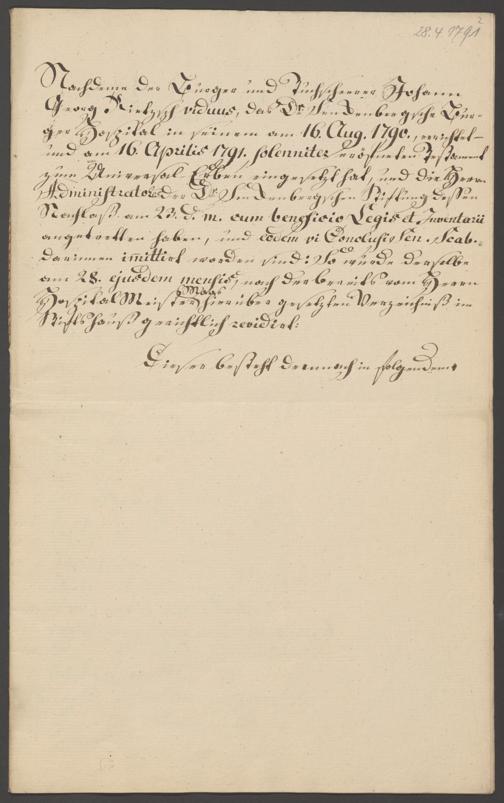 28.4.1791
2
Nachdeme der Burger und Tuchscherer Johann
Georg viduus, das Dr. Senckenbergsche Bur-
ger Hospital in seinem am 16. Aug. 1790. errichtet-
und am 16. Aprilis 1791. solenniter eröffneten Testament
zum Universal Erben eingesetzt hat, und die Herrn
Administratores der Dr. Senckenbergschen Stiftung dessen
Nachlaß am 23. d. m. cum beneficio Legis et Inventarii
angetretten haben, und eodem vi Conclusi Scab.
darinnen immittirt worden sind: So wurde derselbe
am 28. ejusdem mensis, nach der bereits vom Herrn
Hospital Meister Maas hierüber gesetzten Verzeichniß im
Stiftshauß gerichtlich revidirt:
Dieser bestehet demnach in folgendem: